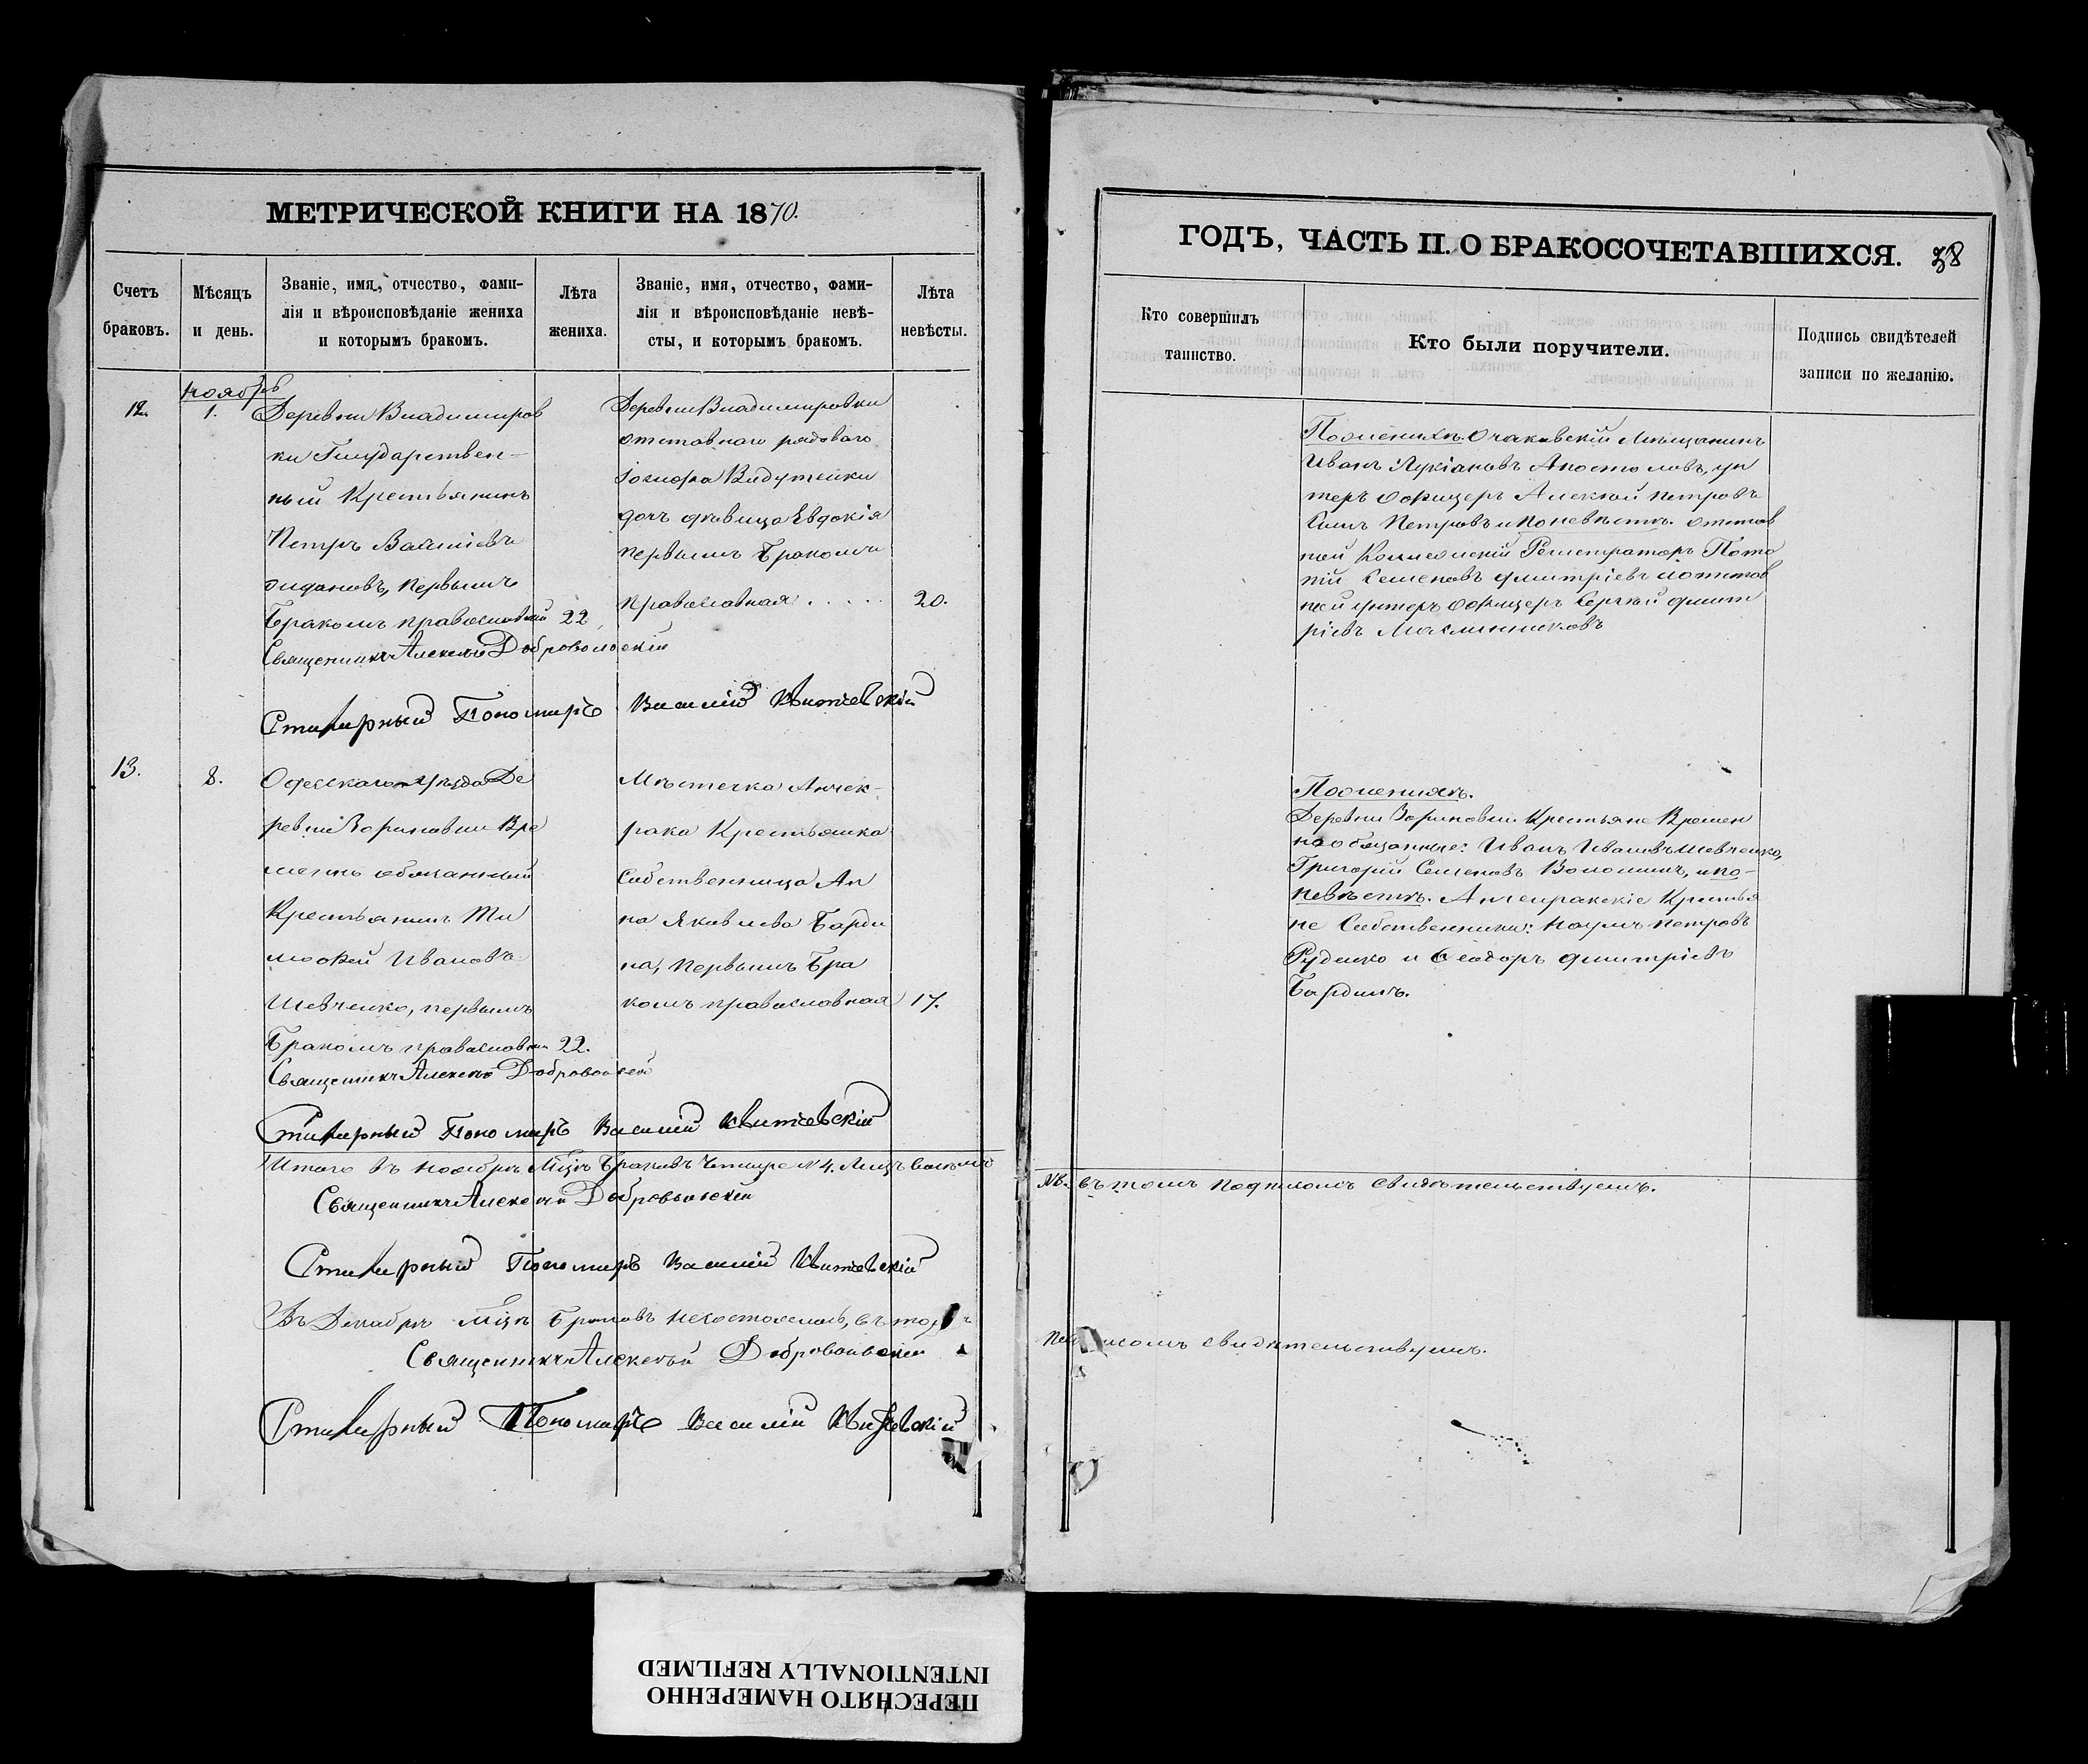 МЕТРИЧЕСКОЙ КНИГИ НА 1870.
Счетъ браковъ.
Мѣсяцъ и день.
Званіе, имя, отчество, фами-
лія и вѣроисповѣданіе жениха
и которымъ бракомъ.
Лѣта жениха.
Званіе, имя, отчество, фами-
лія и вѣроисповѣданіе невѣ-
сты, и которымъ бракомъ.
Лѣта невѣсты.
Ноябрь
12.
1.
Деревни Владимиров
ки Государствен-
ный Крестьянинъ
Петръ Васильевъ
первымъ
бракомъ православный 22
Священникъ Алексѣй Добровольскій
Деревни Владимировки
отставнаго рядоваго
Іосифа
дочь дѣвица Евдокія
первымъ бракомъ
православная . . . . . 20.
Пономарь Василій Квитневскій
13.
8.
Одесскаго уѣзда Де
ревни Зориновки Вре
менно обязанный
Крестьянинъ Ти
мофей Ивановъ
Шевченко, первымъ
бракомъ православн 22.
Священникъ Алексѣй Добровольскій
Мѣстечка Анчек-
рака Крестьянка
Собственница Ан
на Яковлева Барди
на, первымъ бра
комъ православная 17.
Пономарь Василій Квитневскій
Итого въ Ноябрѣ М҃цѣ браковъ четыре № 4. Лицъ восемь
Священникъ Алексѣй Добровольскій
Пономарь Василій Квитневскій
Въ Декабрѣ М҃цѣ браковъ несостоялось, въ томъ
Священникъ Алексѣй Добровольскій
Пономарь Василій Квитневскій
ГОДЪ, ЧАСТЬ II. О БРАКОСОЧЕТАВШИХСЯ. 38
Кто совершилъ таинство.
Кто были поручители.
Подпись свидѣтелей записи по желанію.
По женихѣ. Очаковскій мѣщанинъ
Иванъ Лукіановъ Апостоловъ, ун
теръ офицеръ Алексѣй Петровъ
Сынъ Петровъ и по невѣстѣ. отстав
ной Коллежскій Регистраторъ Пота
пій Семеновъ Дмитріевъ и отстав
ной унтеръ офицеръ Сергѣй Дмит
ріевъ Масленниковъ
По женихѣ.
Деревни Зориновки Крестьяне Времен
нообязанные: Иванъ Ивановъ Шевченко,
Григорій Семеновъ Волошинъ, и по-
невѣстѣ. Анчекракскіе Крестья
не Собственники: Наумъ Петровъ
Руденко и Ѳеодоръ Дмитріевъ
Бардинъ.
№8. въ томъ подписомъ свидѣтельствуемъ.
подписомъ свидѣтельствуемъ.
ПЕРЕСНЯТО НАМЕРЕННО
INTENTIONALLY REFILMED